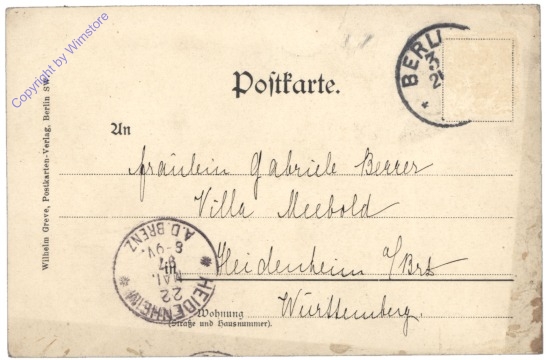 Copyright by Wimstore
Wilhelm Greve, Postkarten-Verlag, Berlin SW.
Postkarte.
BERLI
An
Fräulein Gabriele Berrer
Villa Meebold
in
Heidenheim a/Brz
Württemberg.
Wohnung
(Straße und Hausnummer).
HEIDENHEIM
A.D. BRENZ.
22
MAI.
97
8-9V.